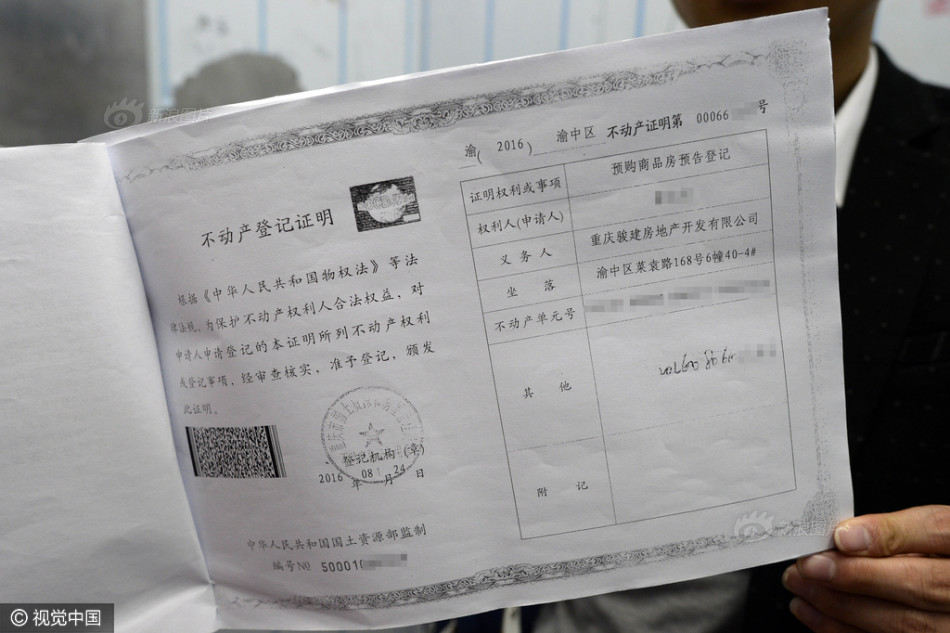 新浪图片
不动产登记证明
根据《中华人民共和国物权法》等法
律法规，为保护不动产权利人合法权益，对
申请人申请登记的本证明所列不动产权利
或登记事项，经审查核实，准予登记，颁发
此证明。
登记机构（章）
2016年08月24日
中华人民共和国国土资源部监制
编号NO 500010
渝(2016)渝中区不动产证明第00066号
证明权利或事项 预购商品房预告登记
权利人(申请人)
义务人 重庆骏建房地产开发有限公司
坐落 渝中区菜袁路168号6幢40-4#
不动产单元号
其他
附记
新浪图片
© 视觉中国